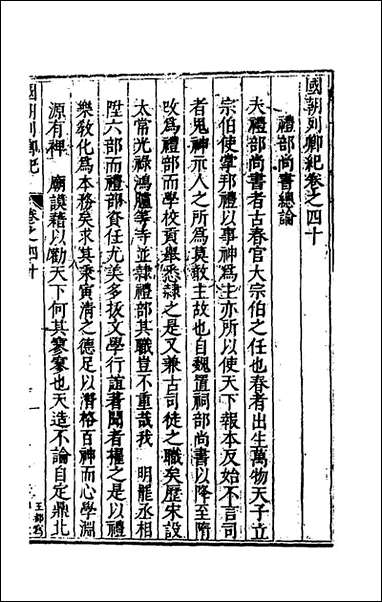 國朝列卿紀卷之四十
禮部尚書總論
夫禮部尚書者古春官大宗伯之任也春者出生萬物天子立
宗伯使掌邦禮以事神為主亦所以使天下報本反始不言司
者鬼神示人之所為莫敢主故也自魏置祠部尚書以降至隋
改為禮部而學校貢舉悉隸之是又兼古司徒之職矣歷宋設
太常光祿鴻臚等寺並隸禮部其職豈不重哉我 明罷丞相
陞六部而禮部資任尤美多拔文學行誼著聞者擢之是以禮
樂敎化為本務矣求其秉寅清之德足以潛格百神而心學淵
源有裨 廟謨藉以勸天下何其寥寥也天造不論自定鼎北
國朝列卿紀 卷之四十 一